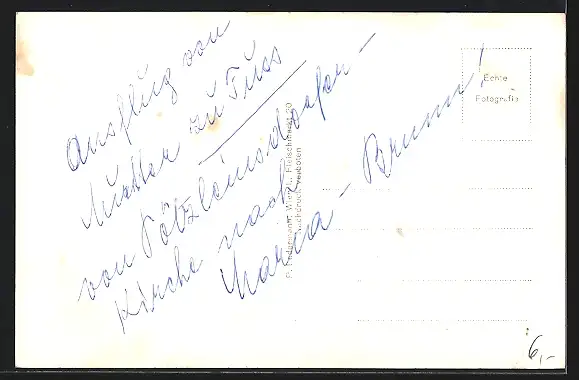 Ausflug von
Mutter zu Fuss
von Pötzleinsdorfer-
Kirche nach
Maria - Brunn!
Echte
Fotografie
P. Ledermann, Wien I., Fleischmarkt 20
Nachdruck verboten
6,-